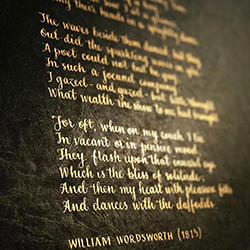 their heads in a sprightly dance.
The waves beside them danced, but they
Out did the sparkling waves in glee:
A poet could not but be gay,
In such a jocund company:
I gazed and gazed but little thought
What wealth the show to me had brought
For oft, when on my couch I lie
In vacant or in pensive mood
They flash upon that inward eye
Which is the bliss of solitude;
And then my heart with pleasure fills
And dances with the daffodils.
WILLIAM WORDSWORTH (1815)